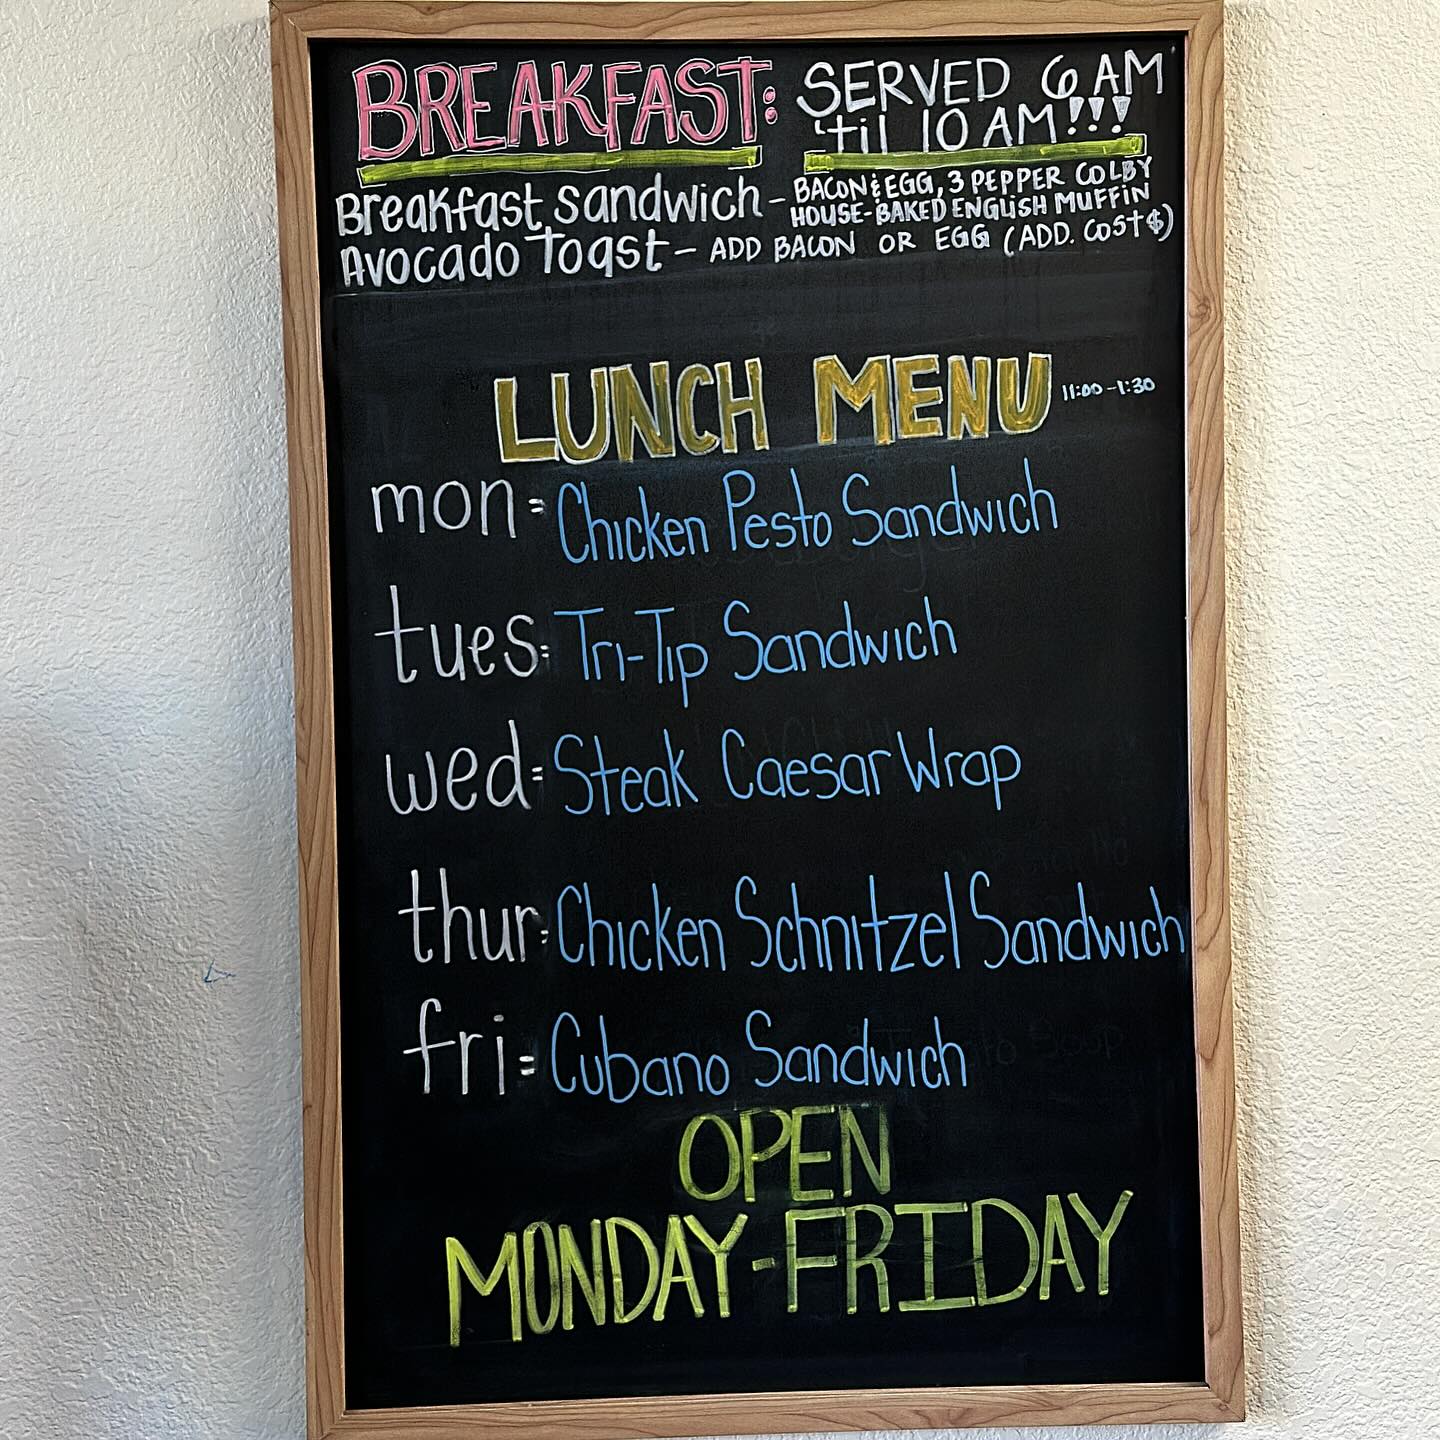 BREAKFAST: SERVED 6 AM
'til 10 AM!!!
Breakfast sandwich - BACON & EGG, 3 PEPPER COLBY
HOUSE-BAKED ENGLISH MUFFIN
Avocado Toast - ADD BACON OR EGG (ADD. COST $)
LUNCH MENU 11:00-1:30
mon: Chicken Pesto Sandwich
tues: Tri-Tip Sandwich
wed: Steak Caesar Wrap
thur: Chicken Schnitzel Sandwich
fri: Cubano Sandwich
OPEN
MONDAY-FRIDAY